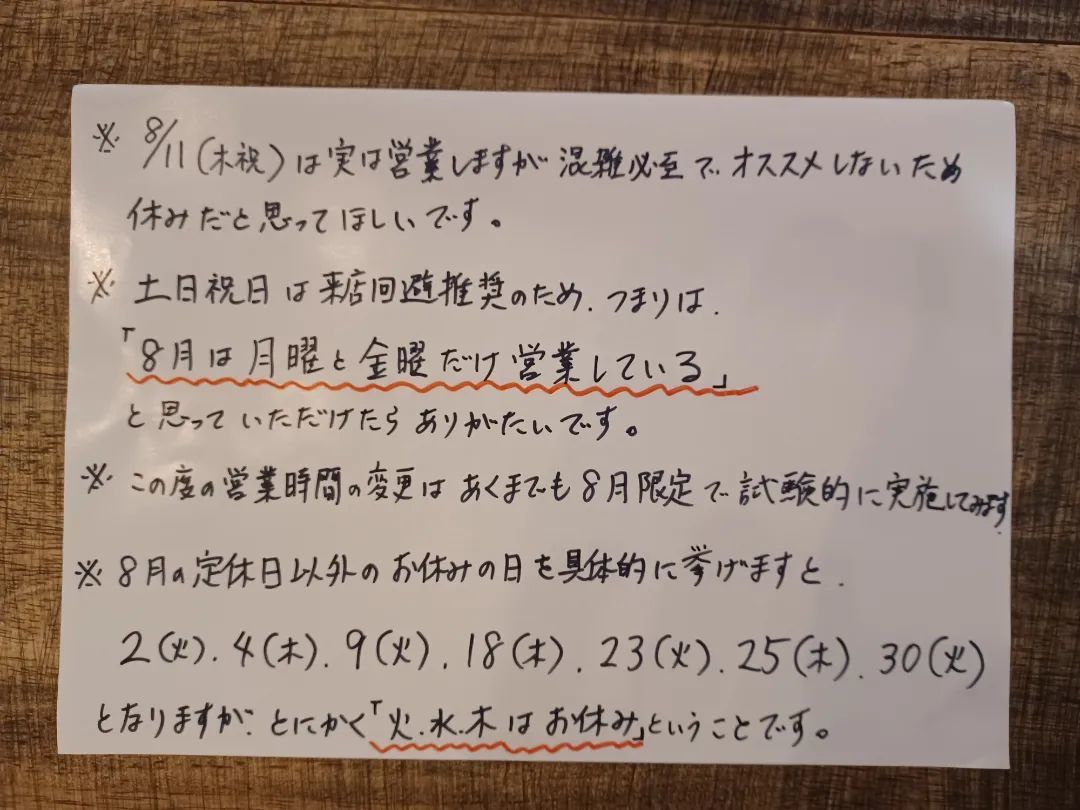 ※ 8/11(木祝)は実は営業しますが混雑必至でオススメしないため
休みだと思ってほしいです。
※ 土日祝日は来店回避推奨のため、つまりは、
「8月は月曜と金曜だけ営業している」
と思っていただけたらありがたいです。
※ この度の営業時間の変更はあくまでも8月限定で試験的に実施してみます。
※ 8月の定休日以外のお休みの日を具体的に挙げますと、
2(火)、4(木)、9(火)、18(木)、23(火)、25(木)、30(火)
となりますが、とにかく「火、水、木はお休み」ということです。